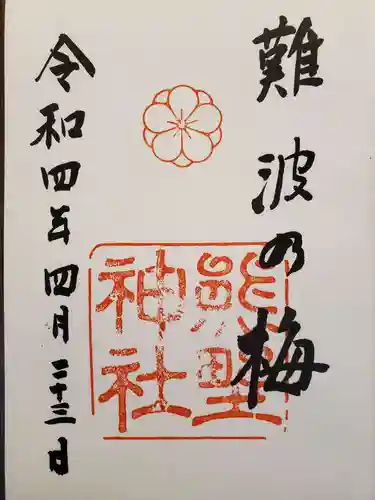 難波の梅
熊野
神社
令和四年四月二十三日